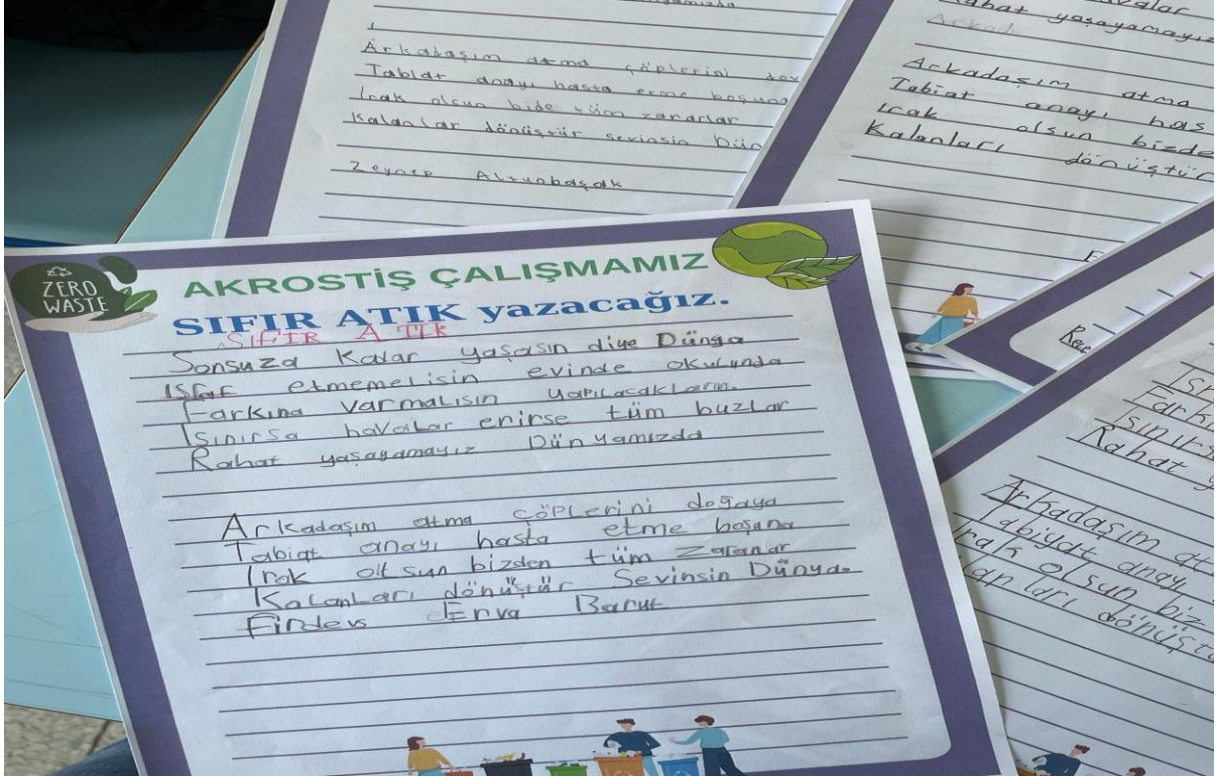 ığımızda
Arkadaşım atma çöplerini
Tabiat anayı hasta etme boşuna
Irak olsun bide tüm zararlar
Kalanlar dönüştür sevinsin Dün
Zeynep Altunbaşak
valar
Rahat yaşayamayız
Arkad
Arkadaşım atma
Tabiat anayı has
Irak olsun bizde
Kalanları dönüştür
E
Rece
ZERO
WASTE
AKROSTİŞ ÇALIŞMAMIZ
SIFIR ATIK yazacağız.
SIFIR ATIK
Sonsuza Kadar yaşasın diye Dünya
ISraf etmemelisin evinde okulunda
Farkına varmalısın yapılacakların.
Isınırsa havalar erirse tüm buzlar
Rahat yaşayamayız Dünyamızda
Arkadaşım atma çöplerini doğaya
Tabiat anayı hasta etme boşuna
Irak olsun bizden tüm zararlar
Kalanları dönüştür Sevinsin Dünya
Firdevs Erva Barut
ISr
Farkı
Isınırs
Rahat y
Arkadaşım at
Tabiyat anay
Irak olsun biz
lan ları dönüşt